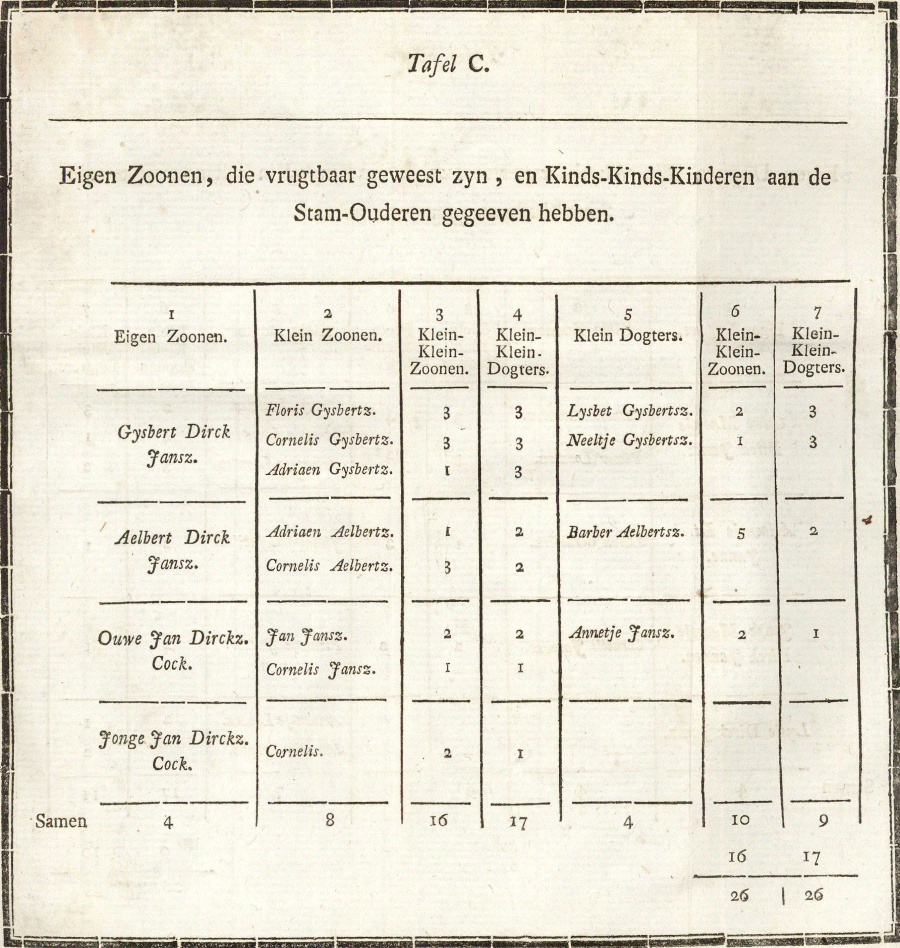 Tafel C.
Eigen Zoonen, die vrugtbaar geweest zyn, en Kinds-Kinds-Kinderen aan de
Stam-Ouderen gegeeven hebben.
1 2 3 4 5 6 7
Eigen Zoonen. Klein Zoonen. Klein- Klein- Klein Dogters. Klein- Klein-
Klein- Klein- Klein- Klein-
Zoonen. Dogters. Zoonen. Dogters.
Floris Gysbertz. 3 3 Lysbet Gysbertsz. 2 3
Gysbert Dirck
Cornelis Gysbertz. 3 3 Neeltje Gysbertsz. 1 3
Jansz.
Adriaen Gysbertz. 1 3
Aelbert Dirck Adriaen Aelbertz. 1 2 Barber Aelbertsz. 5 2
Jansz. Cornelis Aelbertz. 3 2
Ouwe Jan Dirckz. Jan Jansz. 2 2 Annetje Jansz. 2 1
Cock. Cornelis Jansz. 1 1
Jonge Jan Dirckz. Cornelis. 2 1
Cock.
Samen 4 8 16 17 4 10 9
16 17
26 | 26